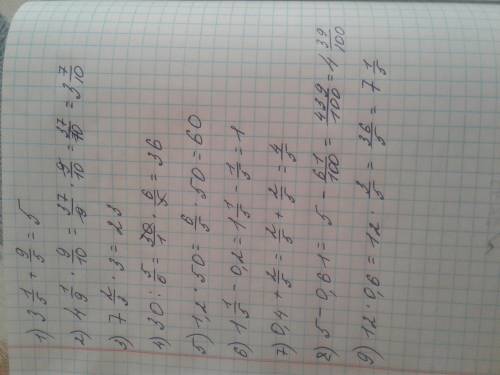 1) 3 1/5 + 9/5 = 5
2) 4 1/9 · 9/10 = 37/9 · 9/10 = 37/10 = 3 7/10
3) 7 2/3 · 3 = 23
4) 30 : 5/6 = 30/1 · 6/5 = 36
5) 1,2 · 50 = 6/5 · 50 = 60
6) 1 1/5 - 0,2 = 1 1/5 - 1/5 = 1
7) 0,4 + 2/5 = 2/5 + 2/5 = 4/5
8) 5 - 0,61 = 5 - 61/100 = 439/100 = 4 39/100
9) 12 · 0,6 = 12 · 3/5 = 36/5 = 7 1/5